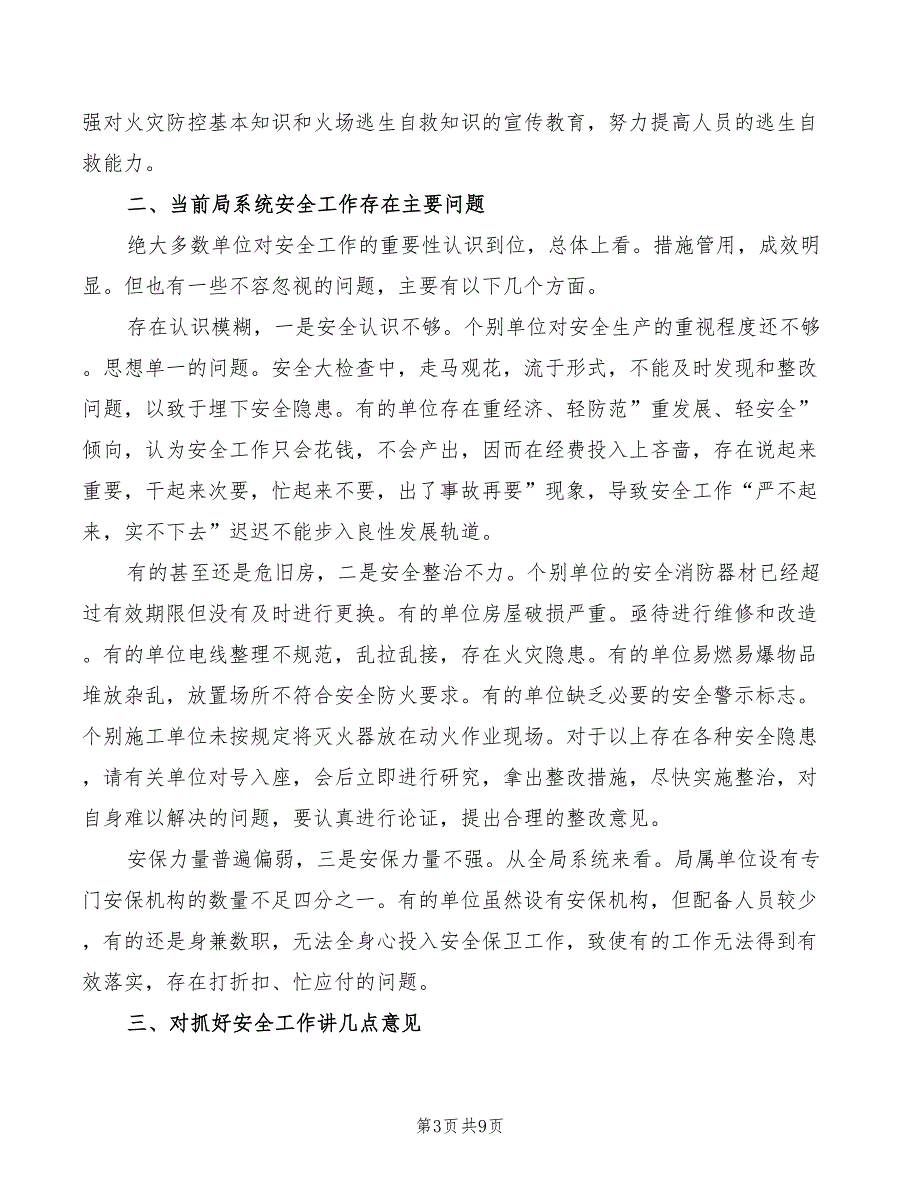 强对火灾防控基本知识和火场逃生自救知识的宣传教育，努力提高人员的逃生自
救能力。
二、当前局系统安全工作存在主要问题
绝大多数单位对安全工作的重要性认识到位，总体上看。措施管用，成效明
显。但也有一些不容忽视的问题，主要有以下几个方面。
存在认识模糊，一是安全认识不够。个别单位对安全生产的重视程度还不够
。思想单一的问题。安全大检查中，走马观花，流于形式，不能及时发现和整改
问题，以致于埋下安全隐患。有的单位存在重经济、轻防范”重发展、轻安全”
倾向，认为安全工作只会花钱，不会产出，因而在经费投入上吝啬，存在说起来
重要，干起来次要，忙起来不要，出了事故再要”现象，导致安全工作“严不起
来，实不下去”迟迟不能步入良性发展轨道。
有的甚至还是危旧房，二是安全整治不力。个别单位的安全消防器材已经超
过有效期限但没有及时进行更换。有的单位房屋破损严重。亟待进行维修和改造
。有的单位电线整理不规范，乱拉乱接，存在火灾隐患。有的单位易燃易爆物品
堆放杂乱，放置场所不符合安全防火要求。有的单位缺乏必要的安全警示标志。
个别施工单位未按规定将灭火器放在动火作业现场。对于以上存在各种安全隐患
，请有关单位对号入座，会后立即进行研究，拿出整改措施，尽快实施整治，对
自身难以解决的问题，要认真进行论证，提出合理的整改意见。
安保力量普遍偏弱，三是安保力量不强。从全局系统来看。局属单位设有专
门安保机构的数量不足四分之一。有的单位虽然设有安保机构，但配备人员较少
，有的还是身兼数职，无法全身心投入安全保卫工作，致使有的工作无法得到有
效落实，存在打折扣、忙应付的问题。
三、对抓好安全工作讲几点意见
第3页 共9页